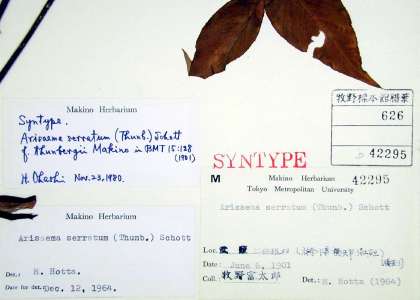 Makino Herbarium
Syntype.
Arisaema serratum (Thunb.) Schott
f. thunbergii Makino in BMT 15:128
(1901)
H. Ohashi Nov. 23, 1980.
Makino Herbarium
Arisaema serratum (Thunb.) Schott
Det.: M. Hotta.
Date for det.: Dec. 12, 1964.
牧野標本館標葉
626
42295
SYNTYPE
M Makino Herbarium 42295
Tokyo Metropolitan University
Arisaema serratum (Thunb.) Schott
Loc.
Date: June 6, 1901
Coll.: 牧野富太郎 Det.: M. Hotta (1964)